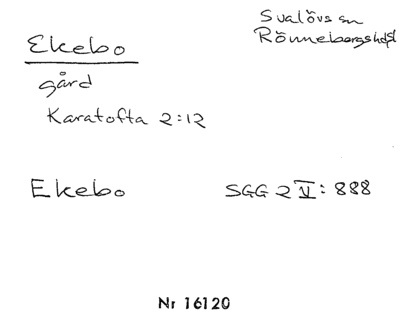 Ekebo
Svalövs sn
Rönnebergshd
gård
Karatofta 2:12
Ekebo
SGG 2 V: 888
Nr 16120